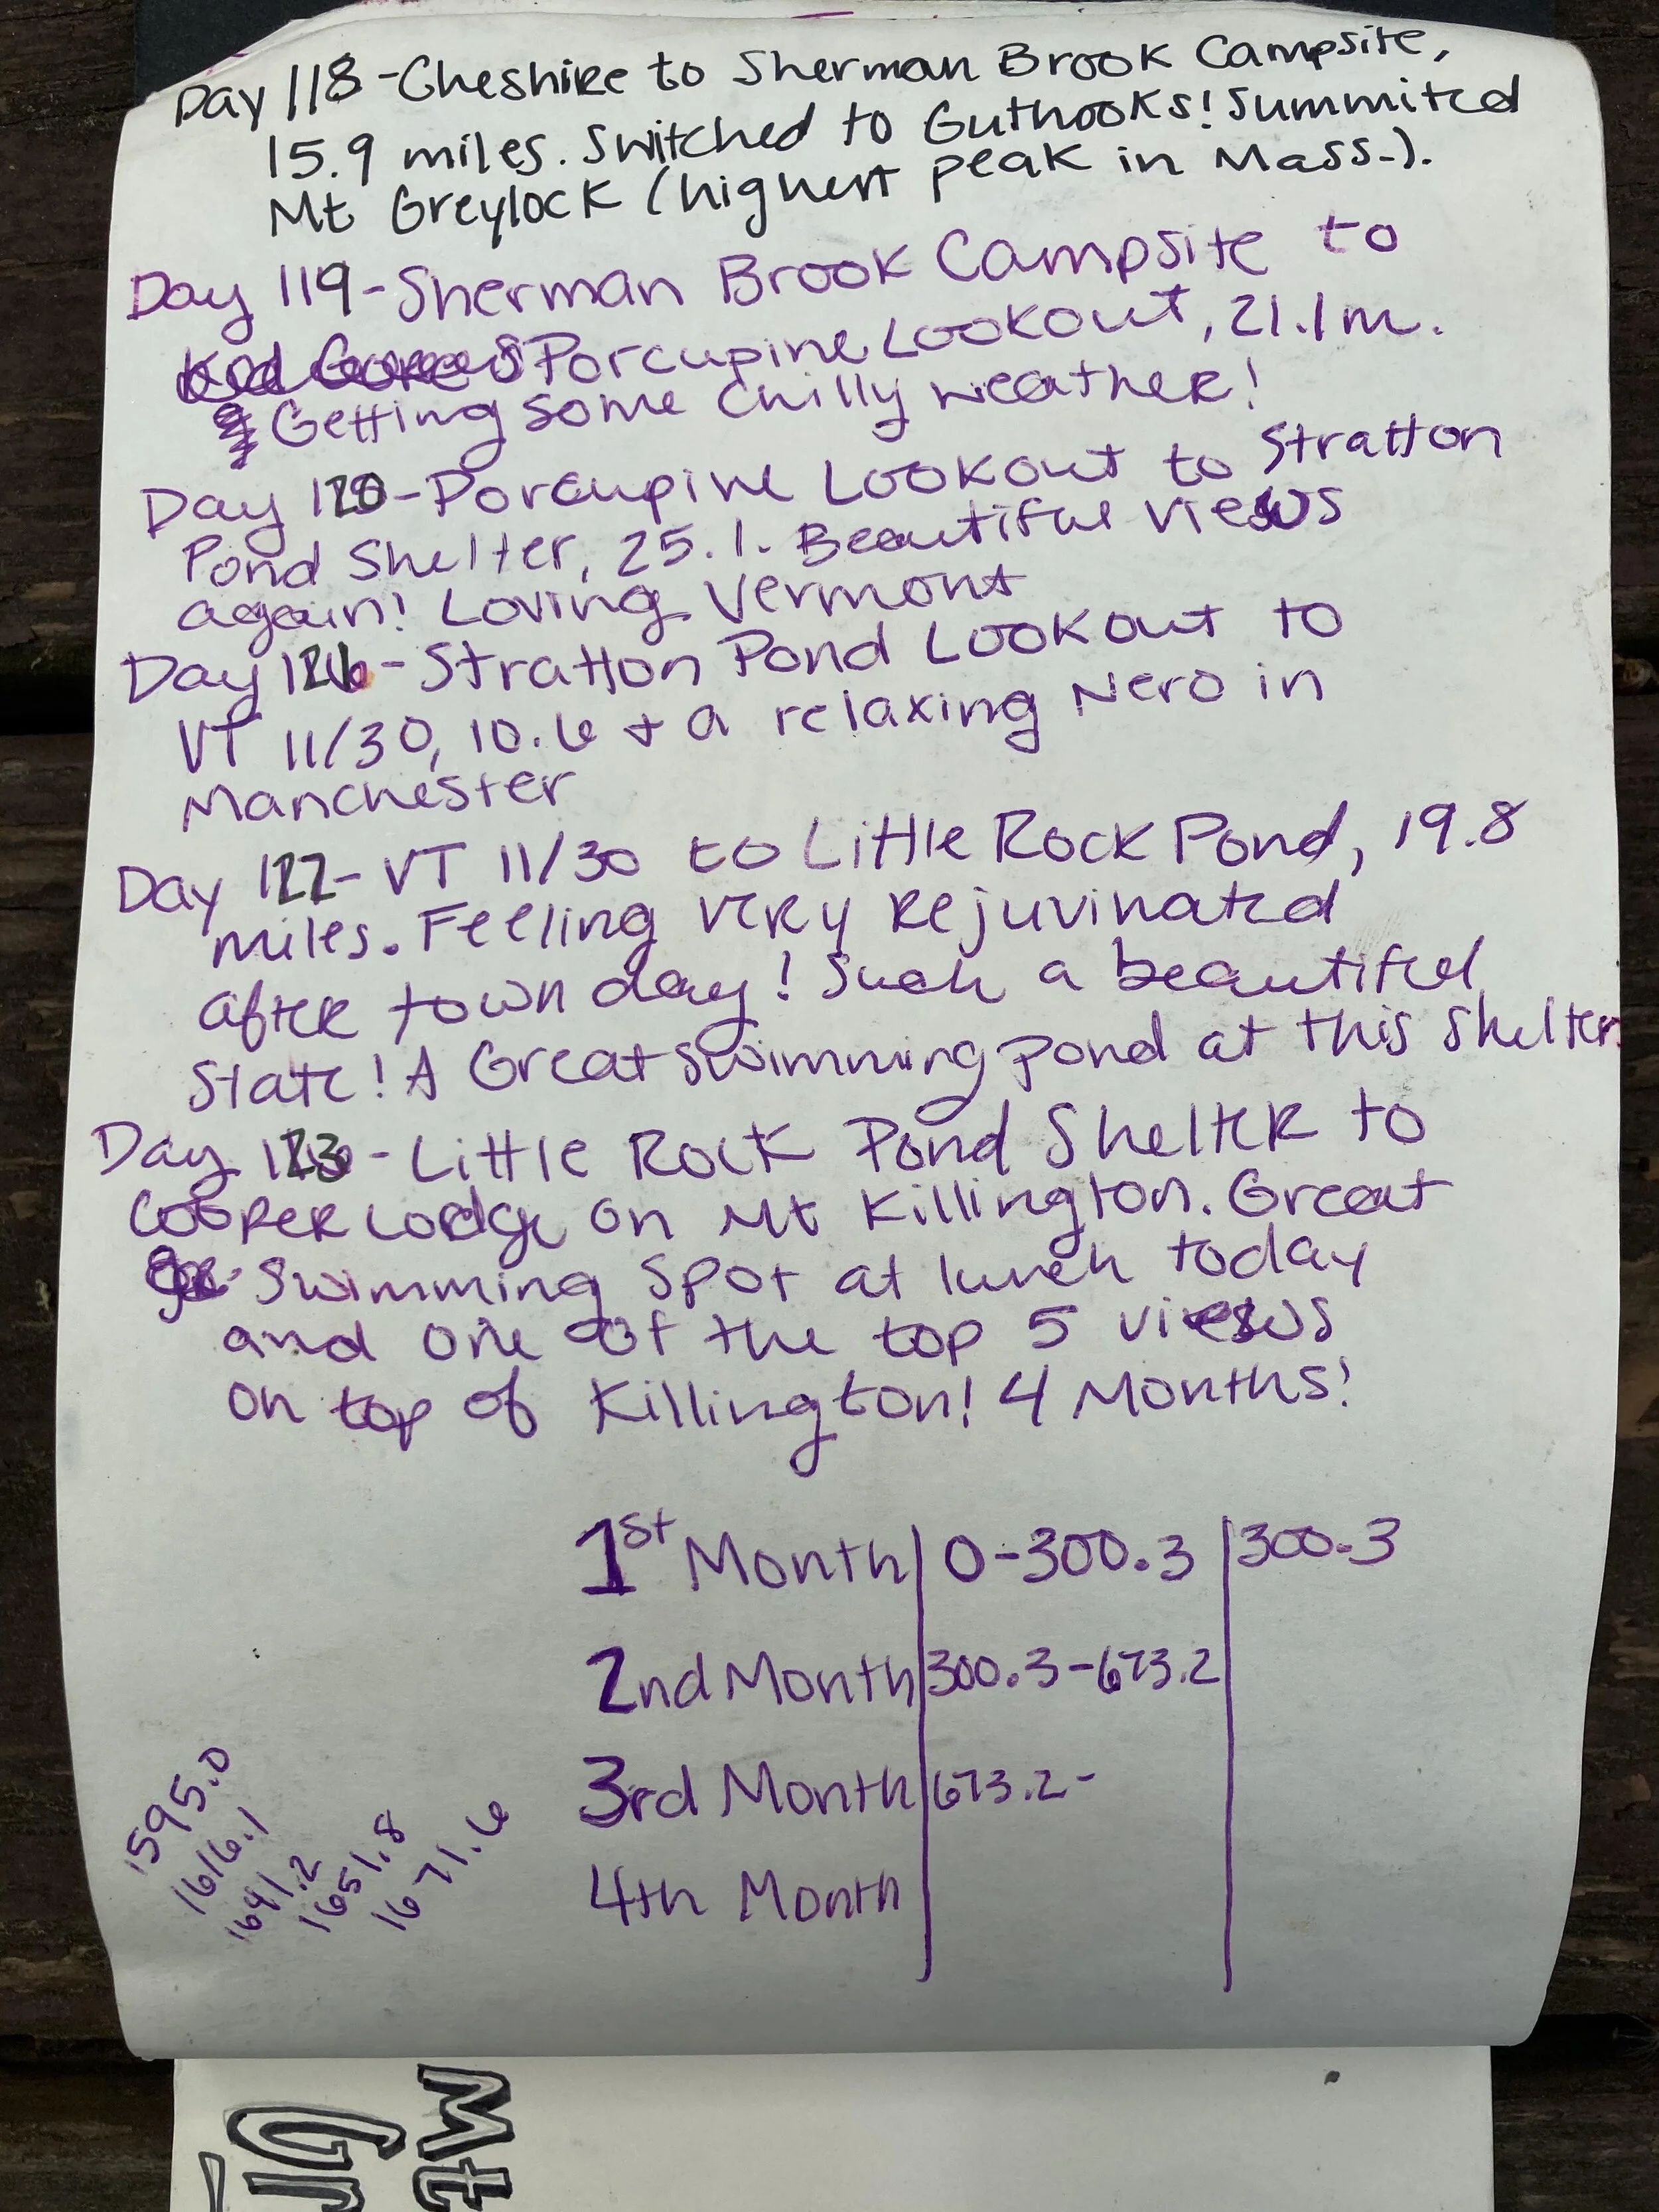 Day 118-Cheshire to Sherman Brook Campsite,
15.9 miles. Switched to Guthooks! Summited
Mt Greylock (highest peak in Mass.).
Day 119-Sherman Brook Campsite to
Porcupine Lookout, 21.1m.
Getting some chilly weather!
Day 120-Porcupine Lookout to Stratton
Pond Shelter, 25.1. Beautiful views
again! Loving Vermont
Day 121-Stratton Pond Lookout to
VT 11/30, 10.6 + a relaxing Nero in
Manchester
Day 122-VT 11/30 to Little Rock Pond, 19.8
miles. Feeling very rejuvinated
after town day! Such a beautiful
state! A Great swimming pond at this shelter.
Day 123-Little Rock Pond Shelter to
Cooper Lodge on Mt Killington. Great
swimming spot at lunch today
and one of the top 5 views
on top of Killington! 4 Months!
1st Month 0-300.3 300.3
2nd Month 300.3-673.2
3rd Month 673.2-
4th Month
1595.0
1616.1
1641.2
1651.8
1671.6